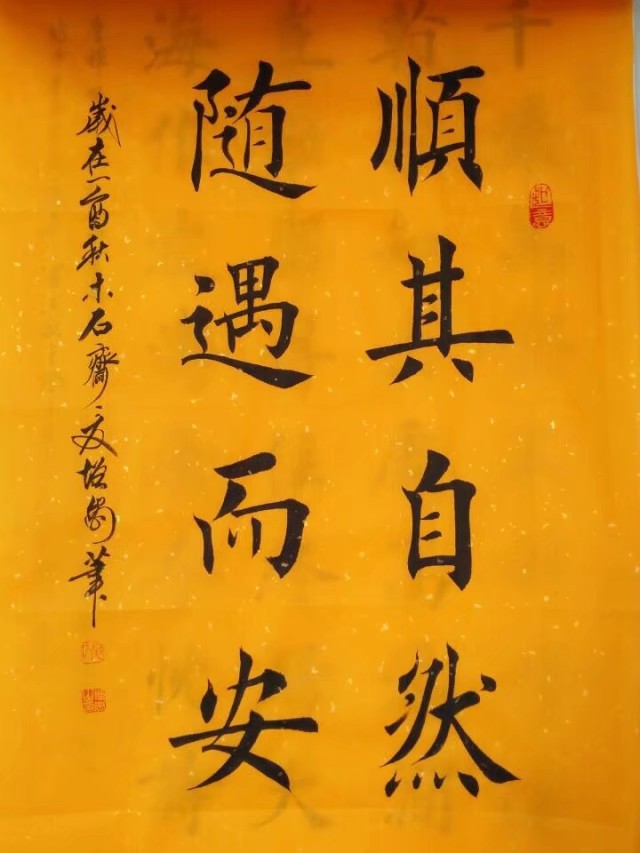 順其自然
随遇而安
歲在酉秋木石齋文筆